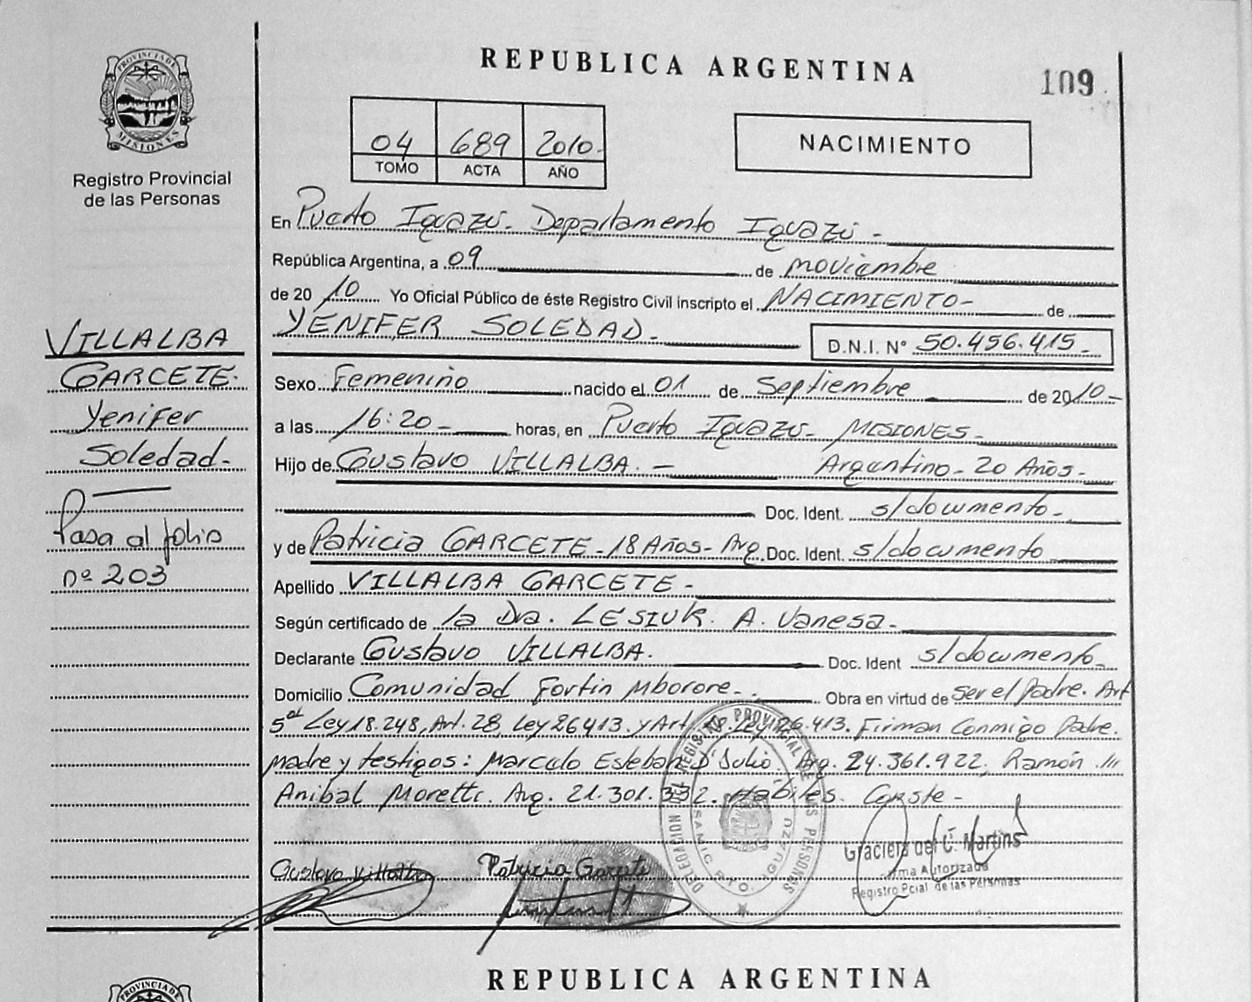 REPUBLICA ARGENTINA
109
PROVINCIA DE MISIONES
Registro Provincial
de las Personas
04 689 2010-
TOMO ACTA AÑO
NACIMIENTO
En Puerto Iguazú- Departamento Iguazú -
República Argentina, a 09 de noviembre
de 2010 Yo Oficial Público de éste Registro Civil inscripto el NACIMIENTO- de
YENIFER SOLEDAD- D.N.I. N° 50.456.415-
VILLALBA
GARCETE-
Yenifer
Soledad-
Pasa al folio
nº 203
Sexo Femenino nacido el 01 de Septiembre de 2010-
a las 16:20- horas, en Puerto Iguazú- MISIONES-
Hijo de Gustavo VILLALBA. - Argentino- 20 Años-
Doc. Ident. s/documento-
y de Patricia GARCETE-18 Años- Arg. Doc. Ident. s/documento
Apellido VILLALBA GARCETE-
Según certificado de la Dra. LESIUK. A. Vanesa-
Declarante Gustavo VILLALBA. Doc. Ident s/documento-
Domicilio Comunidad Fortin Mborore- Obra en virtud de ser el Padre. Art
5º Ley 18.248, Art. 28, Ley 26413. y Art. Ley 26.413. Firman Conmigo Padre.
madre y testigos: Marcelo Esteban D'Julio Arg. 24.361.922, Ramón
Anibal Moretti. Arg. 21.301.332. Hábiles. Conste-
REGISTRO PROVINCIAL DE LAS PERSONAS
DELEGACION PTO. IGUAZU
Gustavo Villalba
Patricia Garcete
Graciela del C. Martins
Firma Autorizada
Registro Pcial de las Personas
REPUBLICA ARGENTINA
PROVINCIA DE